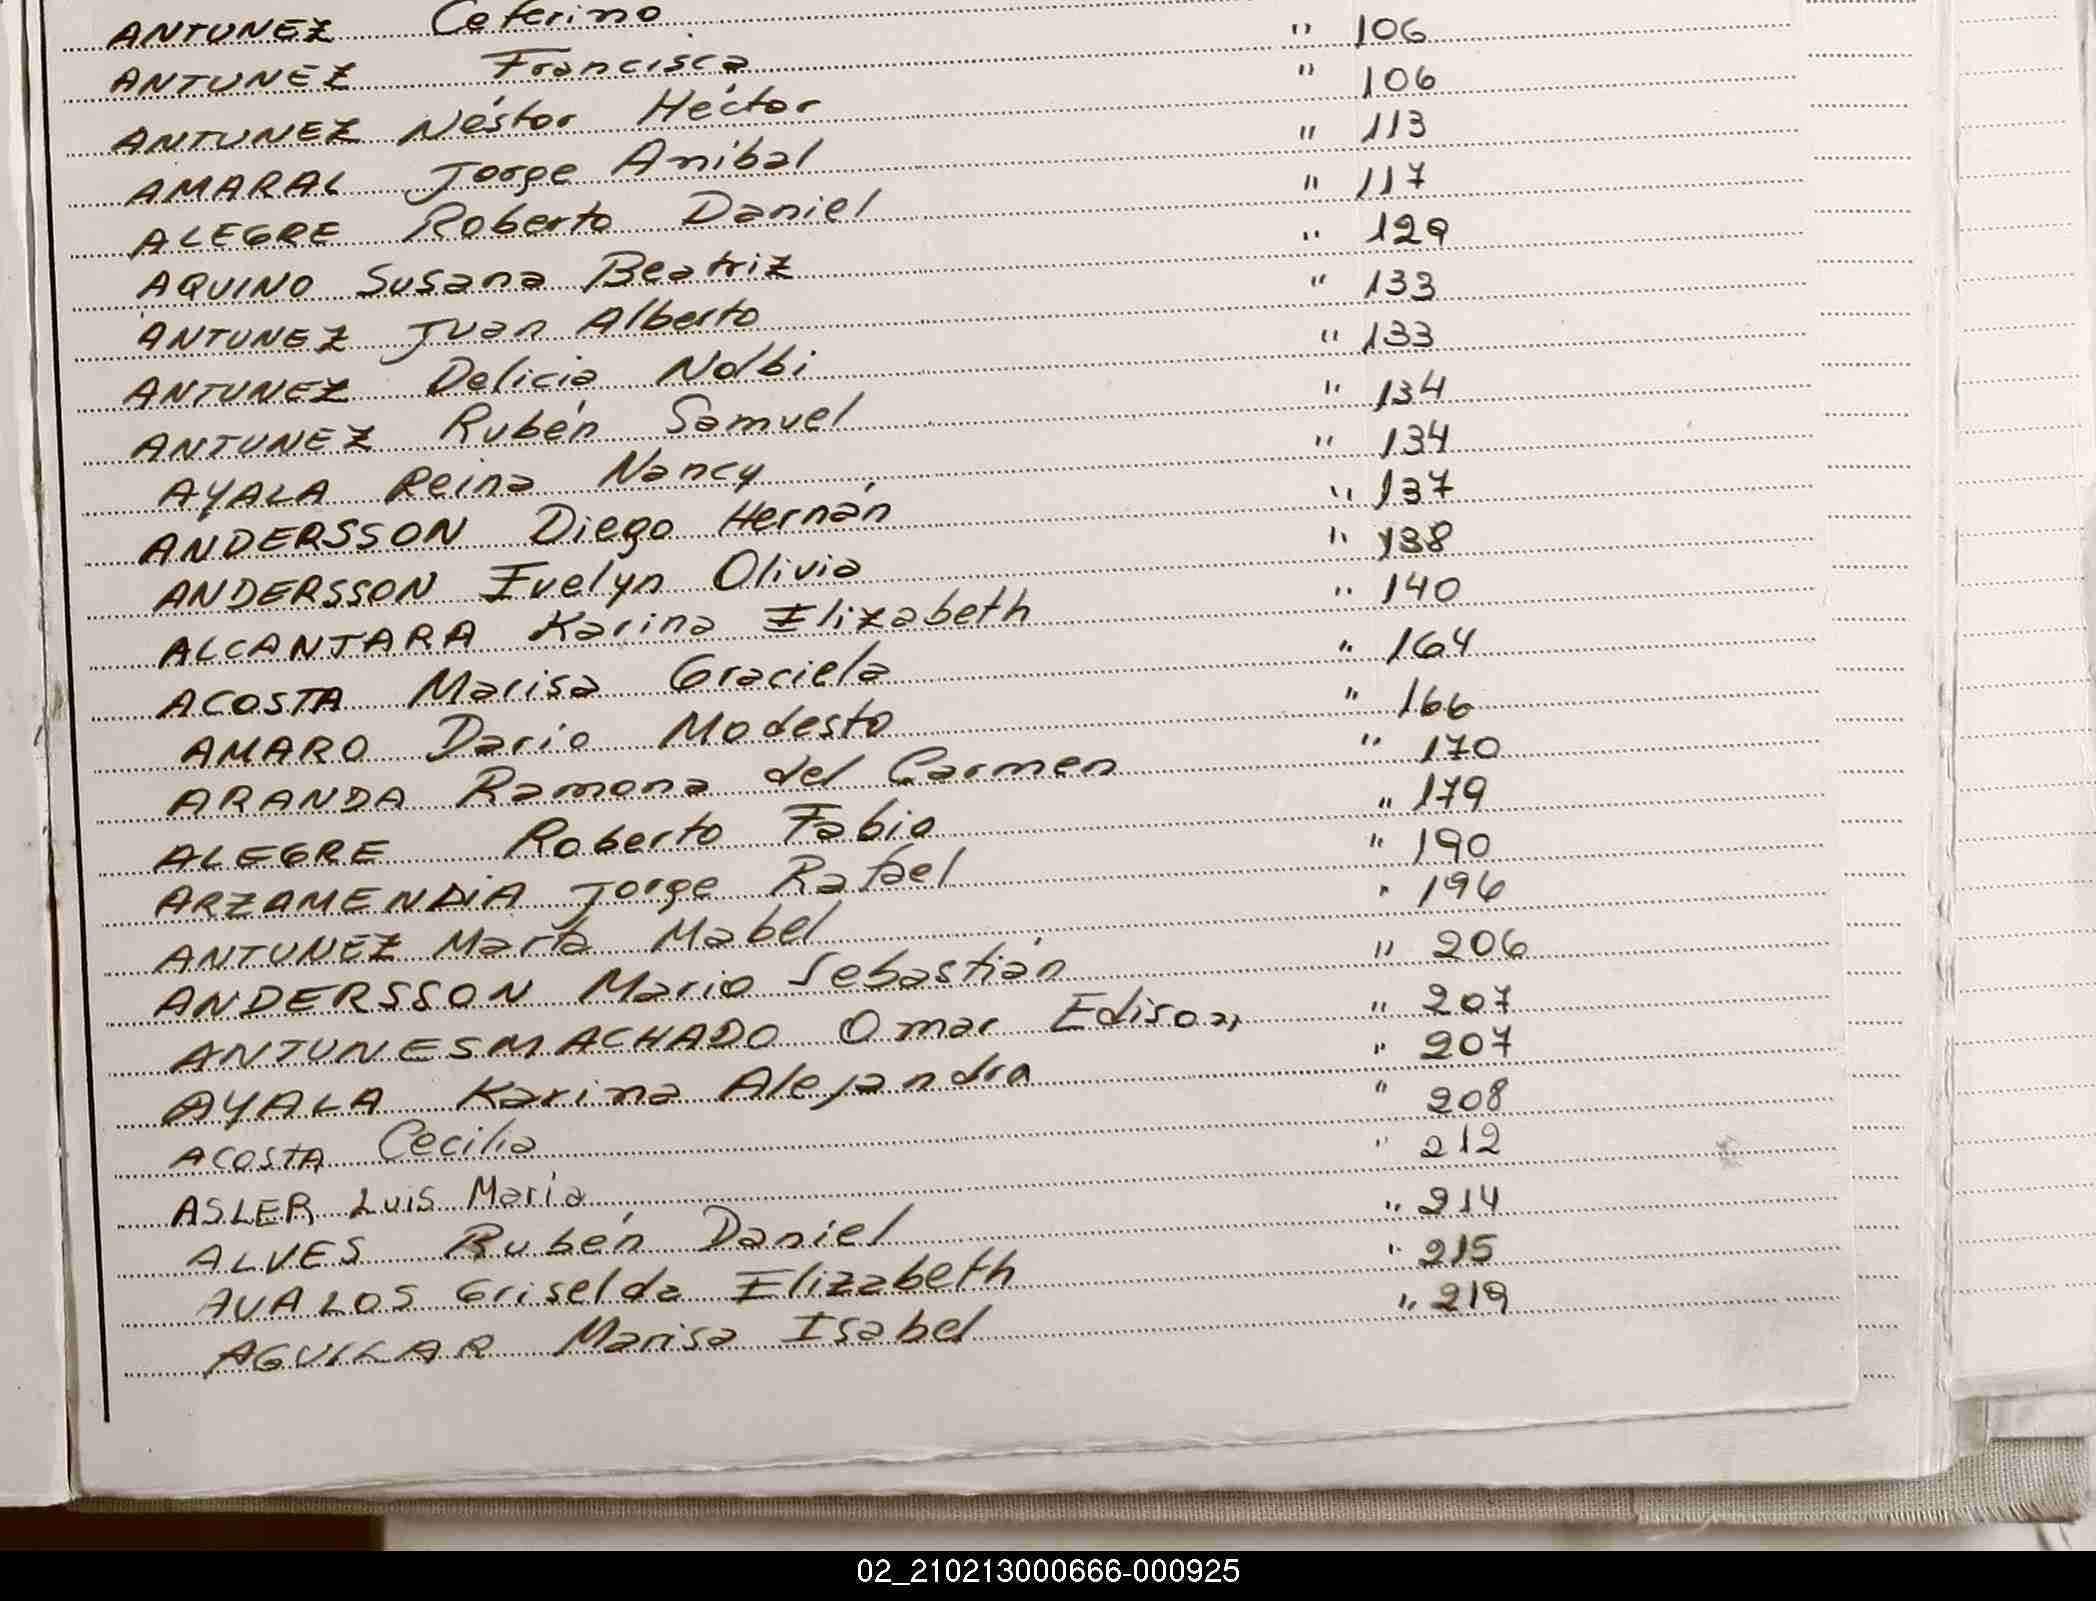 ANTUNEZ Ceferino
ANTUNEZ Francisca " 106
ANTUNEZ Néstor Héctor " 106
AMARAL Jorge Anibal " 113
ALEGRE Roberto Daniel " 117
AQUINO Susana Beatriz " 129
ANTUNEZ Juan Alberto " 133
ANTUNEZ Delicia Nolbi " 133
ANTUNEZ Rubén Samuel " 134
AYALA Reina Nancy " 134
ANDERSSON Diego Hernán " 137
ANDERSSON Evelyn Olivia " 138
ALCANTARA Karina Elizabeth " 140
ACOSTA Marisa Graciela " 164
AMARO Dario Modesto " 166
ARANDA Ramona del Carmen " 170
ALEGRE Roberto Fabio " 179
ARZAMENDIA Jorge Rafael " 190
ANTUNEZ Marta Mabel " 196
ANDERSSON Mario Sebastián " 206
ANTUNESMACHADO Omar Edison " 207
AYALA Karina Alejandra " 207
ACOSTA Cecilia " 208
ASLER Luis Maria " 212
ALVES Rubén Daniel " 214
AVALOS Griselda Elizabeth " 215
AGUILAR Marisa Isabel " 219
02_210213000666-000925